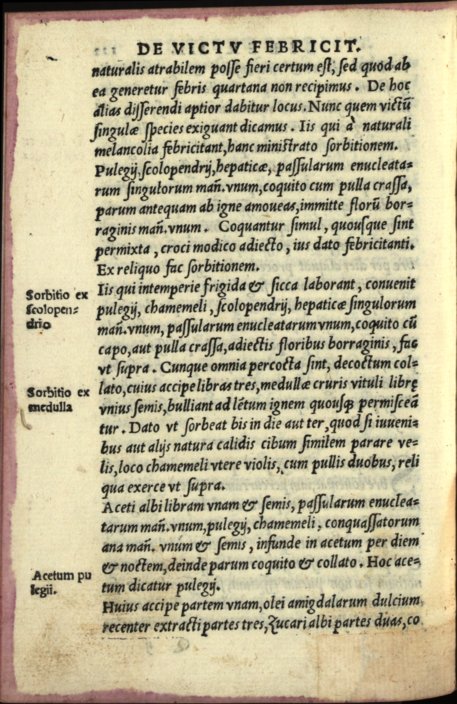 DE VICTV FEBRICIT.
naturalis atrabilem posse fieri certum est, sed quod ab
ea generetur febris quartana non recipimus. De hoc
aliàs disserendi aptior dabitur locus. Nunc quem victũ
singulæ species exiguant dicamus. Iis qui à naturali
melancolia febricitant, hanc ministrato sorbitionem.
Pulegij, scolopendrij, hepaticæ, passularum enucleata-
rum singulorum mañ. vnum, coquito cum pulla crassa,
parum antequam ab igne amoueas, immitte florũ bor-
raginis mañ. vnum. Coquantur simul, quousque sint
permixta, croci modico adiecto, ius dato febricitanti.
Ex reliquo fac sorbitionem.
Sorbitio ex
scolopen-
drio
Iis qui intemperie frigida & sicca laborant, conuenit
pulegij, chamemeli, scolopendrij, hepaticæ singulorum
mañ. vnum, passularum enucleatarum vnum, coquito cũ
capo, aut pulla crassa, adiectis floribus borraginis, fac
vt supra. Cunque omnia percocta sint, decoctum col-
Sorbitio ex
medulla
lato, cuius accipe libras tres, medullæ cruris vituli librę
vnius semis, bulliant ad lẽtum ignem quousq; permisceã
tur. Dato vt sorbeat bis in die aut ter, quod si iuueni-
bus aut alijs natura calidis cibum similem parare ve-
lis, loco chamemeli vtere violis, cum pullis duobus, reli
qua exerce vt supra.
Aceti albi libram vnam & semis, passularum enuclea-
tarum mañ. vnum, pulegij, chamemeli, conquassatorum
ana mañ. vnum & semis, infunde in acetum per diem
Acetum pu
legii.
& noctem, deinde parum coquito & collato. Hoc ace-
tum dicatur pulegij.
Huius accipe partem vnam, olei amigdalarum dulcium
recenter extracti partes tres, Zucari albi partes duas, co